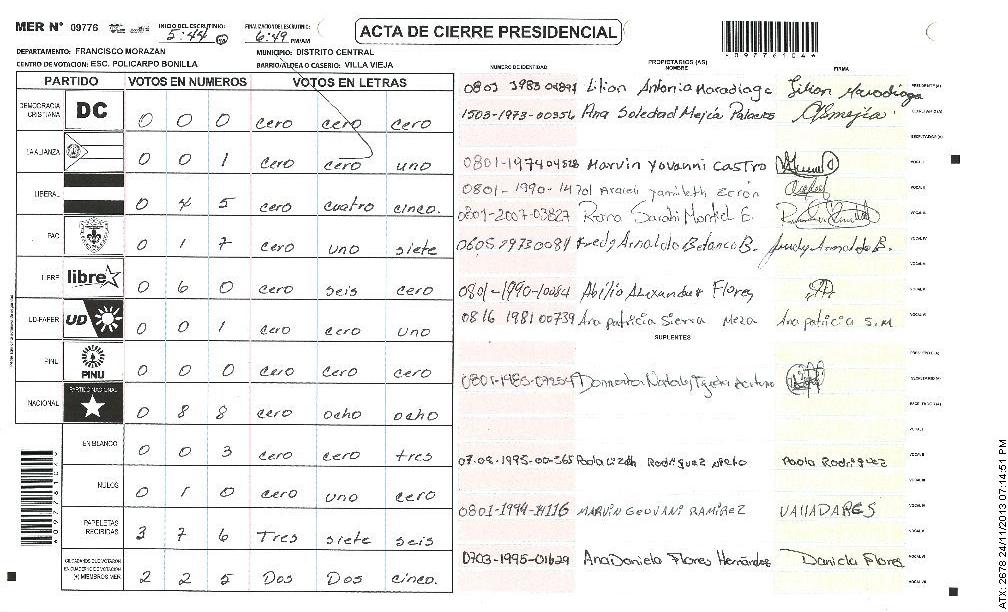 MER N° 09776 INICIO DEL ESCRUTINIO: 5:44 FINALIZACION DE ESCRUTINIO: 6:49 PM/AM ACTA DE CIERRE PRESIDENCIAL
DEPARTAMENTO: FRANCISCO MORAZAN MUNICIPIO: DISTRITO CENTRAL
CENTRO DE VOTACION: ESC. POLICARPO BONILLA BARRIO/ALDEA O CASERIO: VILLA VIEJA
PARTIDO VOTOS EN NUMEROS VOTOS EN LETRAS
DEMOCRACIA CRISTIANA DC 0 0 0 cero cero cero
LA ALIANZA 0 0 1 cero cero uno
LIBERAL 0 4 5 cero cuatro cinco.
PAC 0 1 7 cero uno siete
LIBRE libre 0 6 0 cero seis cero
UD-FAPER UD 0 0 1 cero cero uno
PINU PINU 0 0 0 cero cero cero
NACIONAL PARTIDO NACIONAL 0 8 8 cero ocho ocho
EN BLANCO 0 0 3 cero cero tres
NULOS 0 1 0 cero uno cero
PAPELETAS RECIBIDAS 3 7 6 Tres siete seis
CIUDADANOS QUE VOTARON EN CUADERNO DE VOTACION (+) MIEMBROS MER 2 2 5 Dos Dos cinco.
NUMERO DE IDENTIDAD PROPIETARIOS (AS) NOMBRE FIRMA
Lilian Antonia Maradiaga Lilian Maradiaga PRESIDENTE(A)
1503-1973-00356 Ana Soledad Mejia Palacios
Marvin Yovanni Castro
0801-1990-14701 Araceli Yamileth Zerón
0801-2007-03827
Fredy Arnaldo Betanco B. Fredy Arnaldo B.
0801-1990-10084 Abilio Alexander Flores
0816 1981 00739 Ana patricia Sierra Meza Ana patricia S.M
SUPLENTES
Paola Lizeth Rodriguez Nieto Paola Rodriguez
0801-1994-14116 MARVIN GEOVANI RAMIREZ VALLADARES
0703-1995-01629 Ana Daniela Flores Hernández Daniela Flores
ATX: 2678 24/11/2013 07:14:51 PM